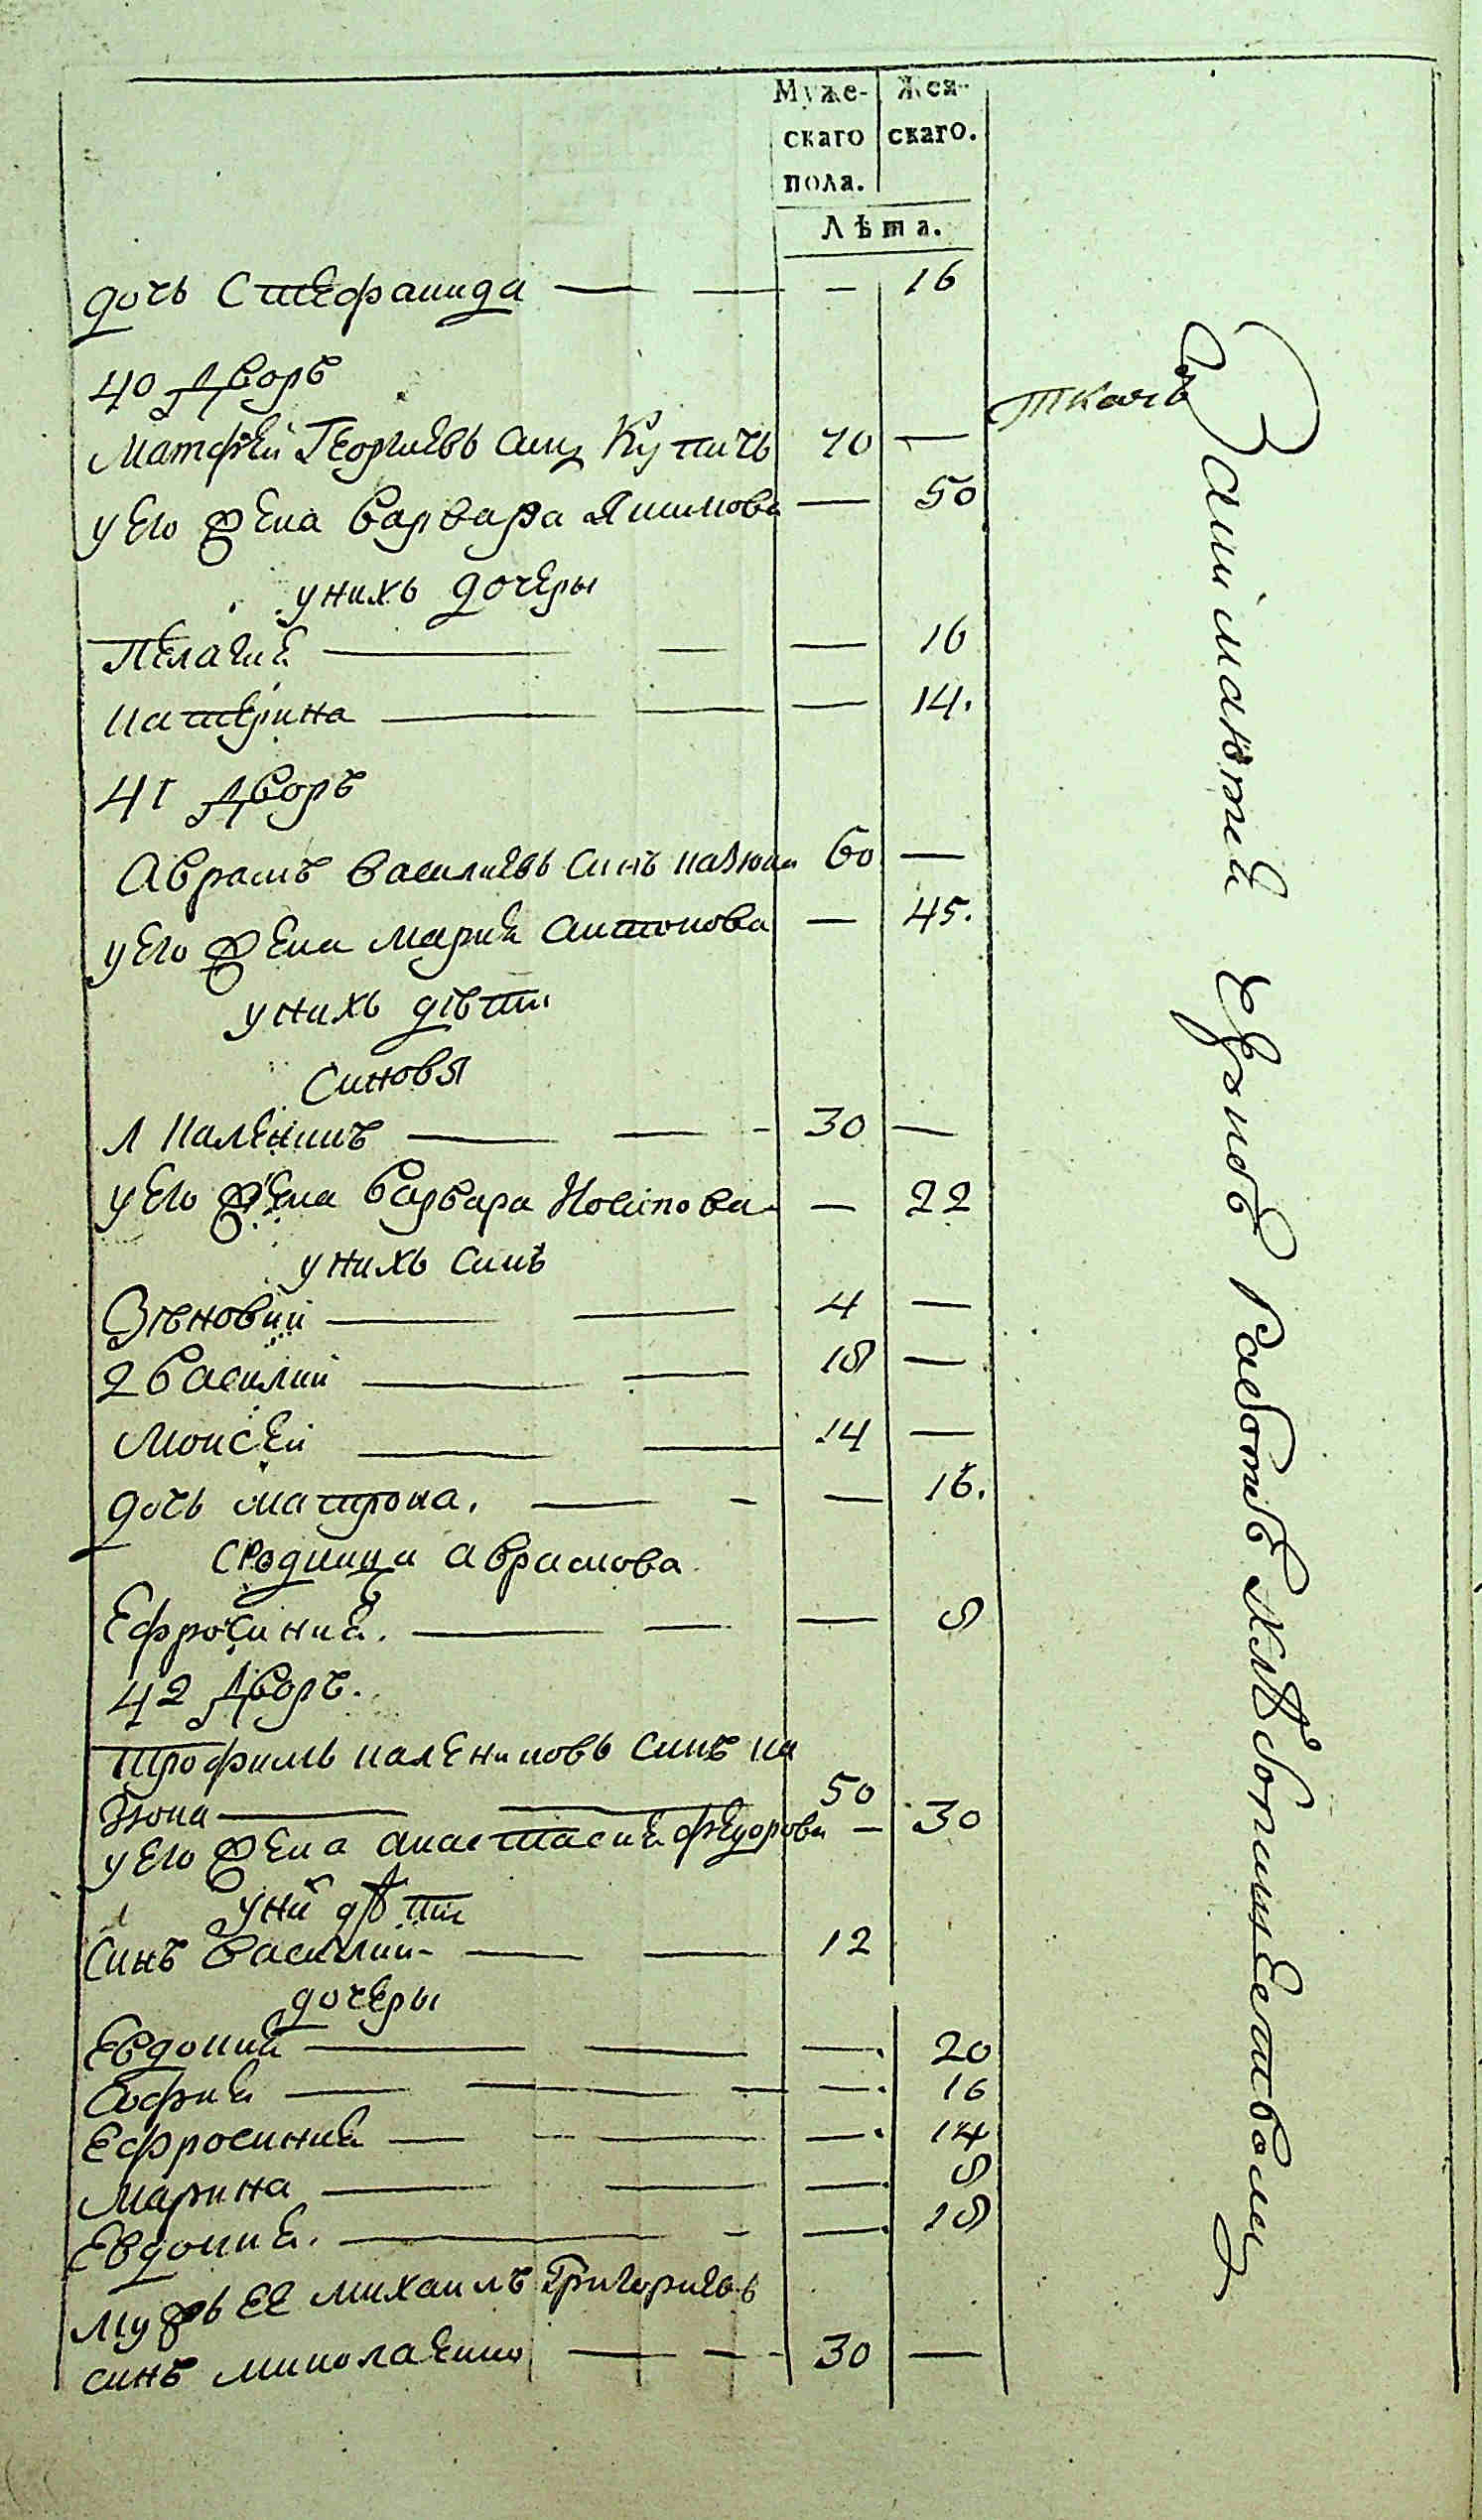 Муже-
скаго
пола.
Жен-
скаго.
Лѣта.
дочь Стефанида — — — 16
40 Дворъ
Матфей Георгиевъ синъ Купичъ 70 — ткачь
у его жена Варвара Якимова — 50
у нихъ дочеры
Пелагие — — — 16
Катерина — — — 14.
41 Дворъ
Аврамъ Василиевъ синъ Казюка 60 —
у его жена Мария Антонова — 45.
у нихъ дѣти
Синовя
1 Каленикъ — — 30 —
у его жена Варвара Иосипова — 22
у нихъ синъ
Зѣновий — — 4 —
2 Василий — — 18 —
Моисей — — 14 —
дочь Матрона. — — — 16.
Сродница Аврамова
Ефросиния. — — — 8
42 Дворъ.
Трофимъ Калениковъ синъ Ка
зюка — — 50
у его жена Анастасия Федорова — 30
у ни дѣти
Синъ Василий — — 12
дочеры
Евдокия — — — 20
София — — — 16
Ефросиния — — — 14
Марина — — — 8
Евдокия. — — — 18
Мужъ ЕЕ Михаилъ Григориевъ
синъ Миколаенко — — 30 —
Занимаются Еврной Работы Хлѣбопашеством